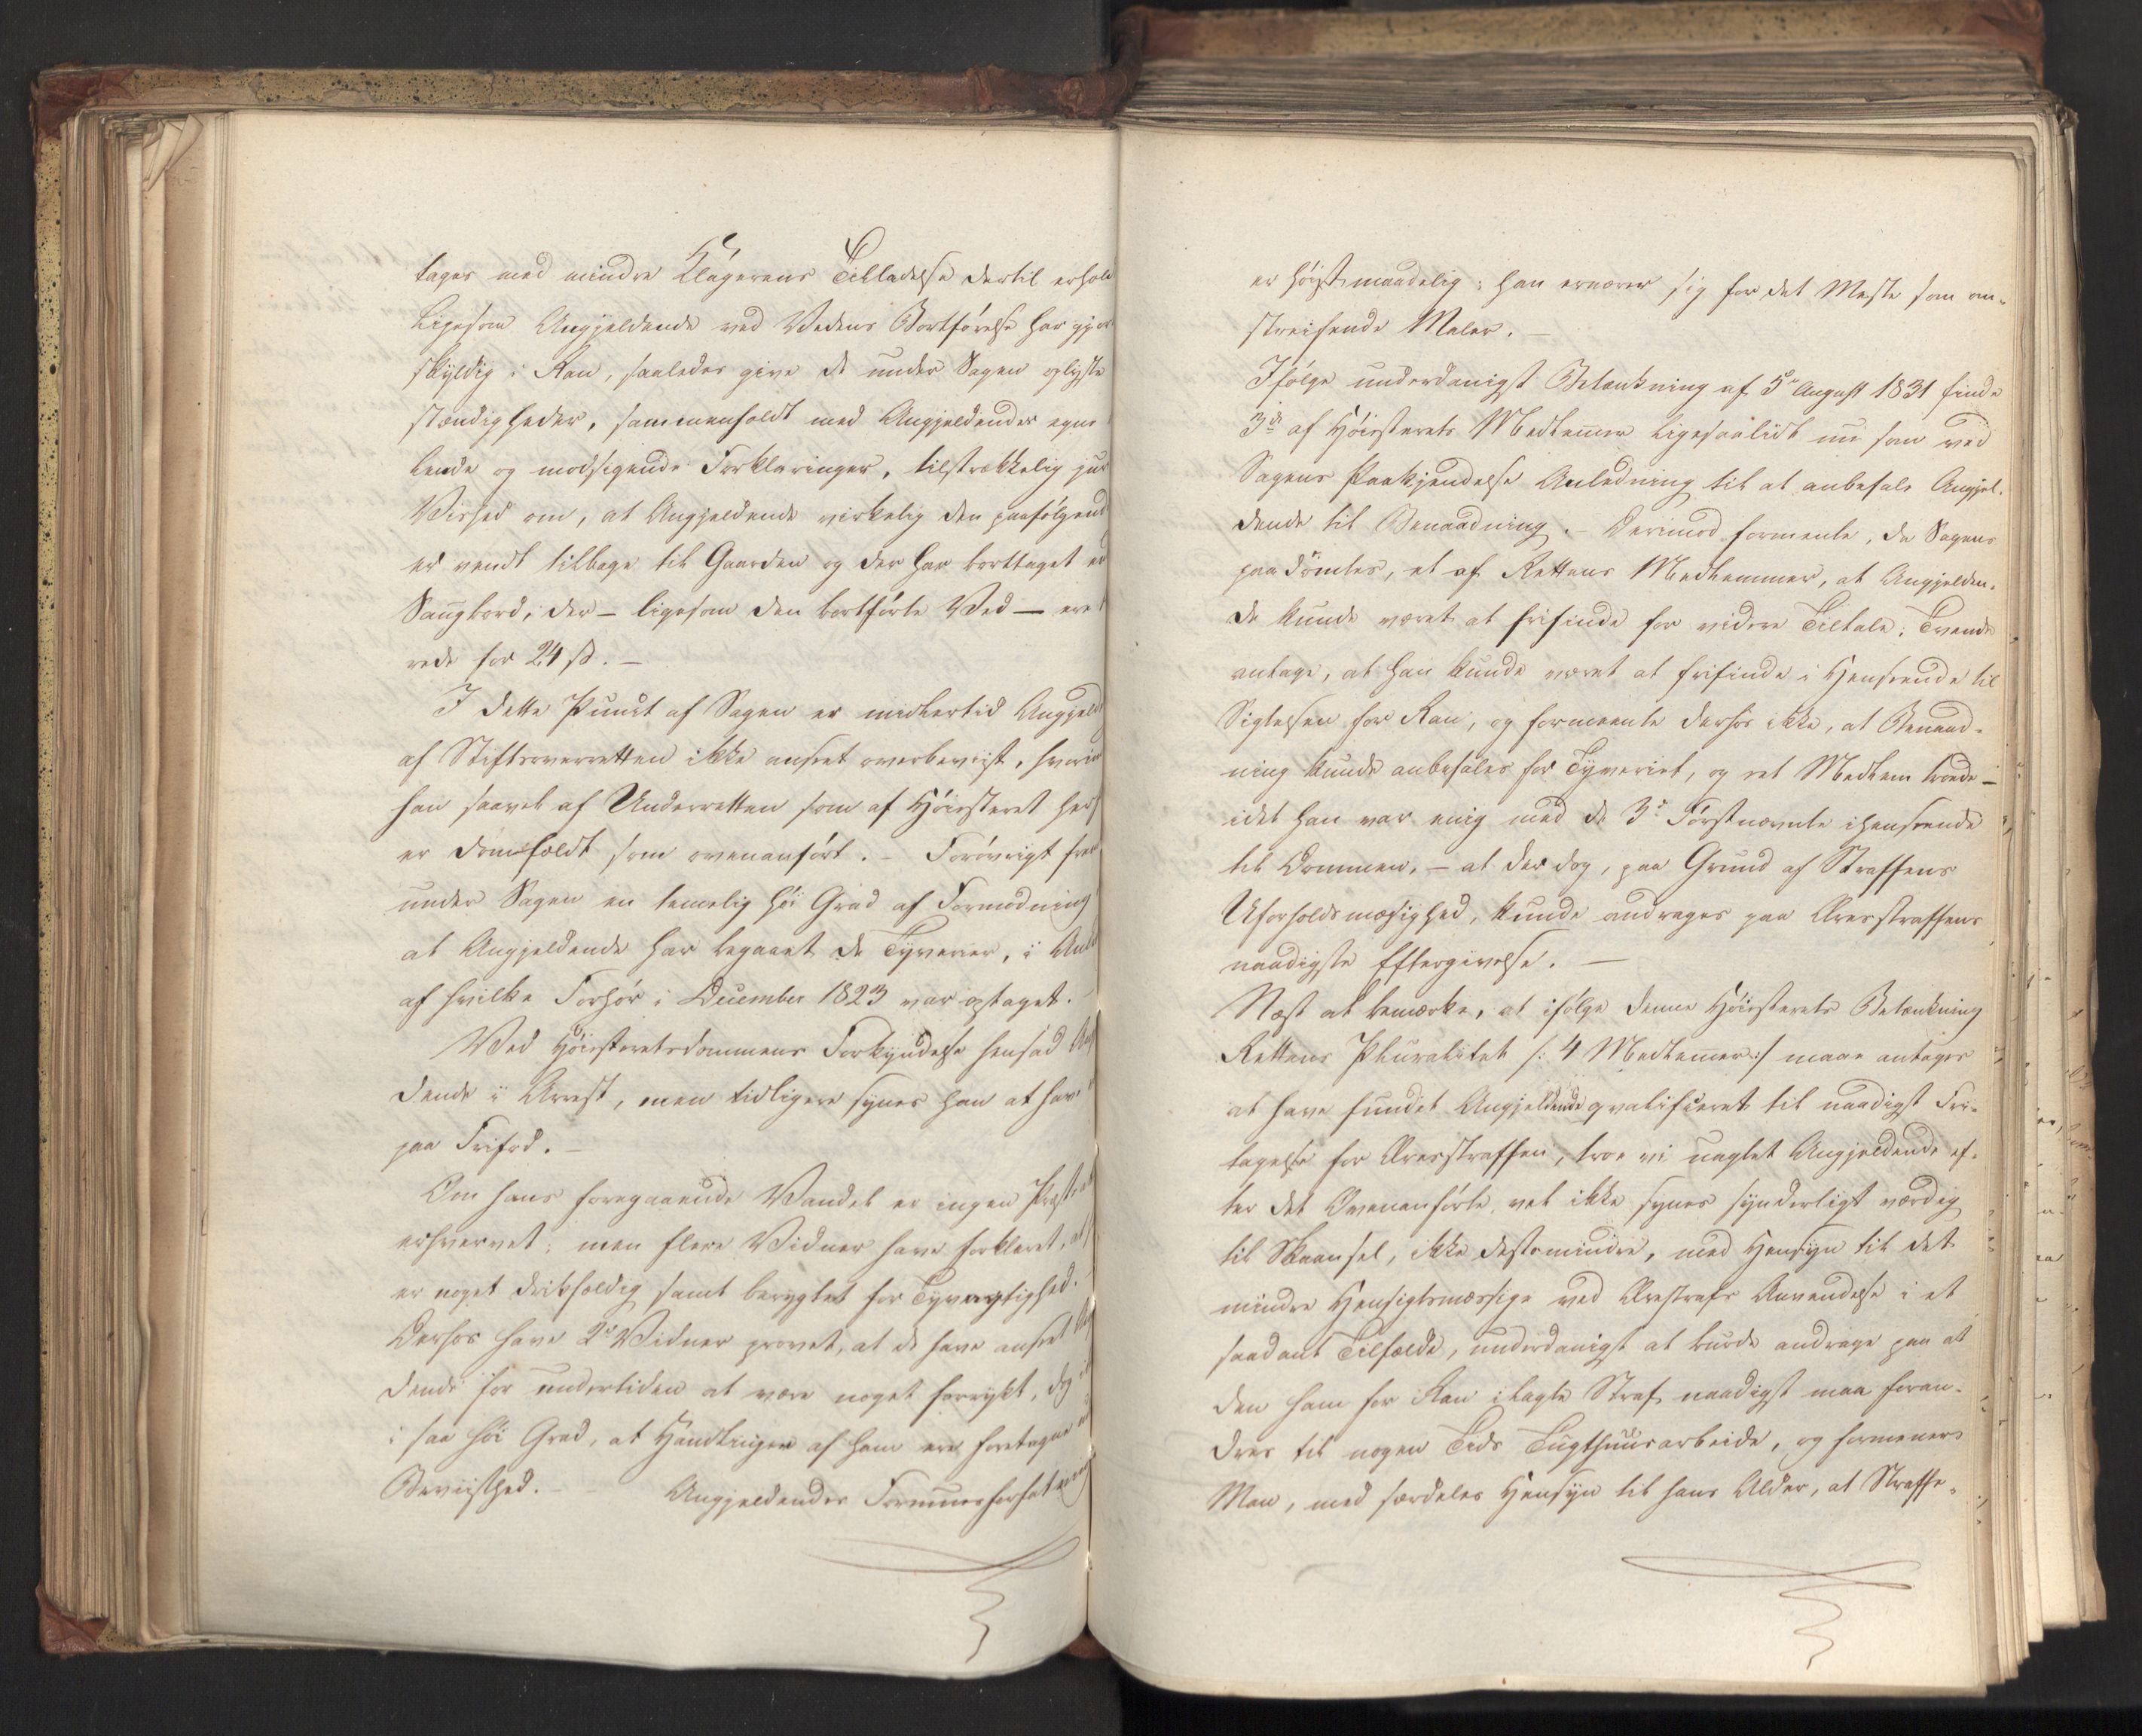 tages med mindre Klagerens Tilladelse dertil erhol
Ligesom Angjeldende ved Vedens Bortførelse har gjor
skyldig i Ran, saaledes give de under Sagen oplyste
stændigheder, sammenholdt med Angjeldendes egne
lende og modsigende Forklaringer, tilstrækkelig jur
Vished om, at Angjeldende virkelig den paafølgend
er vendt tilbage til Gaarden og der har borttaget
Saugbord, der – ligesom den bortførte Ved – ere
rede for 24 ß. –
I dette Punct af Sagen er midlertid Angjeld
af Stiftsoverretten ikke anseet overbeviist, hvorim
han saavel af Underretten som af Høiesteret her
er domfældt som ovenanført. – Forøvrigt frem
under Sagen en temelig høi Grad af Formodning
at Angjeldende har begaaet de Tyverier, i Anl
af hvilke Forhør i December 1823 var optaget. –
Ved Høiesteretsdommens Forkyndelse hensad Ang
dende i Arrest, men tidligere synes han at have
paa Frifod. –
Om hans foregaaende Vandel er ingen Præste
erhvervet; men flere Vidner have forklaret, at
er noget drikfældig samt berygtet for Tyvagtighed.
Derhos have 2de Vidner provet, at de have anseet Ang
dende for undertiden at være noget forrykt, dog
i saa høi Grad, at Handlinger af ham ere foretagne
Beviisthed. – Angjeldendes Formuesforfatning
er høist maadelig; han ernærer sig for det Meste som om-
streifende Maler. –
Ifølge underdanigst Betænkning af 5te August 1831 finde
3de af Høiesterets Medlemmer ligesaalidt nu som ved
Sagens Paakjendelse Anledning til at anbefale Angjel-
dende til Benaadning. – Derimod formente, da Sagens
paadømtes, et af Rettens Medlemmer, at Angjelden-
de kunde været at frifinde for videre Tiltale; Tvende
antage, at han kunde været at frifinde i Henseende til
Sigtelsen for Ran, og formeente derfor ikke, at Benaad-
ning kunde anbefales for Tyveriet, og eet Medlem troede –
idet han var enig med de 3de Førstnævnte ihenseende
til Dommen, – at der dog, paa Grund af Straffens
Uforholdsmæsighed, kunde andrages paa Æresstraffens
naadigste Eftergivelse. –
Næst at bemærke, at ifølge denne Høiesterets Betænkning
Rettens Pluralitet /: 4 Medlemer :/ maae antages
at have fundet Angjeldende qvalificeret til naadigst Fri-
tagelse for Æresstraffen, troe vi uagtet Angjeldende ef-
ter det Ovenanførte vel ikke synes synderligt værdig
til Skaansel, ikke destomindre, med Hensyn til det
mindre Hensigtsmæssige ved Ærestrafs Anvendelse i et
saadant Tilfælde, underdanigst at burde andrage paa at
den ham for Ran ilagte Straf naadigst maa foran-
dres til nogen Tids Tugthuusarbeide, og formener
Man, med særdeles Hensyn til hans Alder, at Straffe-